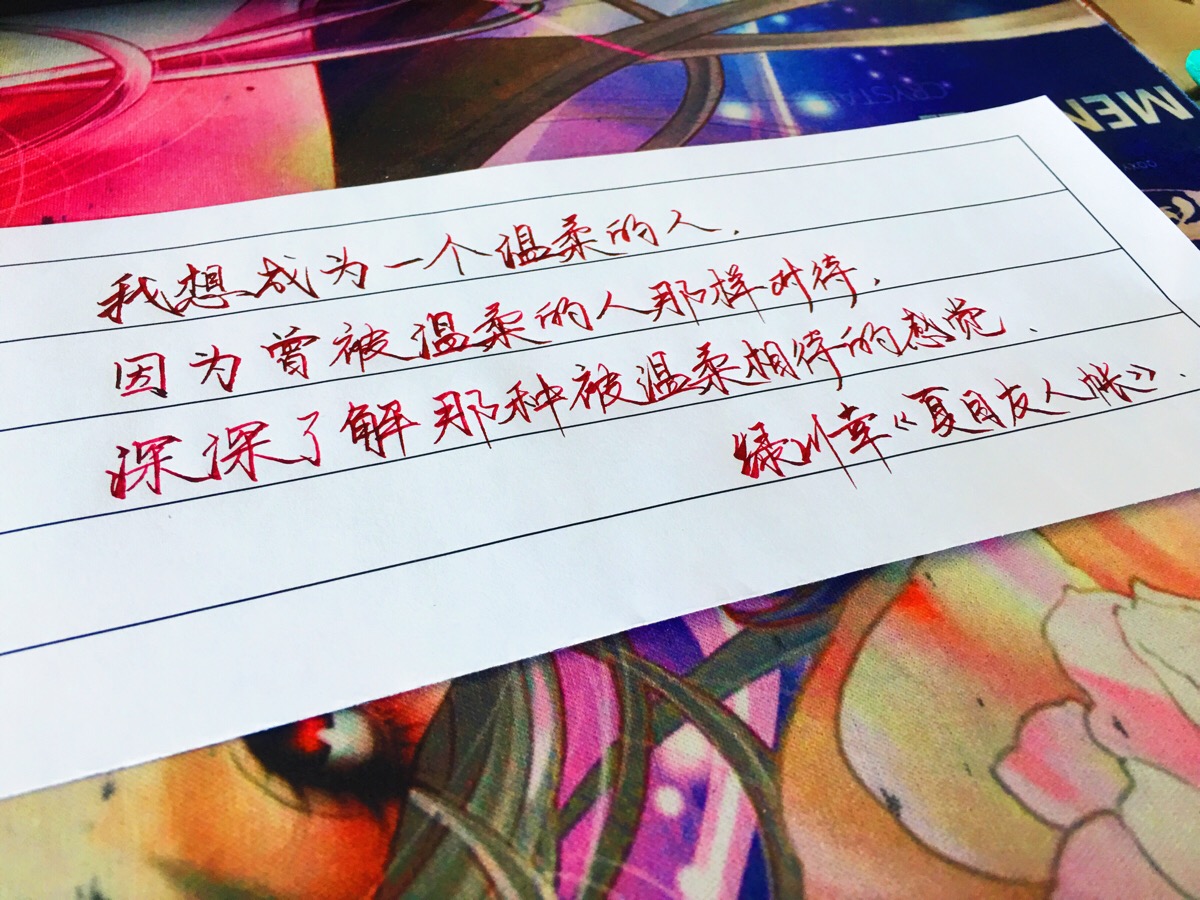 CRYSTAL
MEN
我想成为一个温柔的人.
因为曾被温柔的人那样对待.
深深了解那种被温柔相待的感觉.
绿川幸《夏目友人帐》.